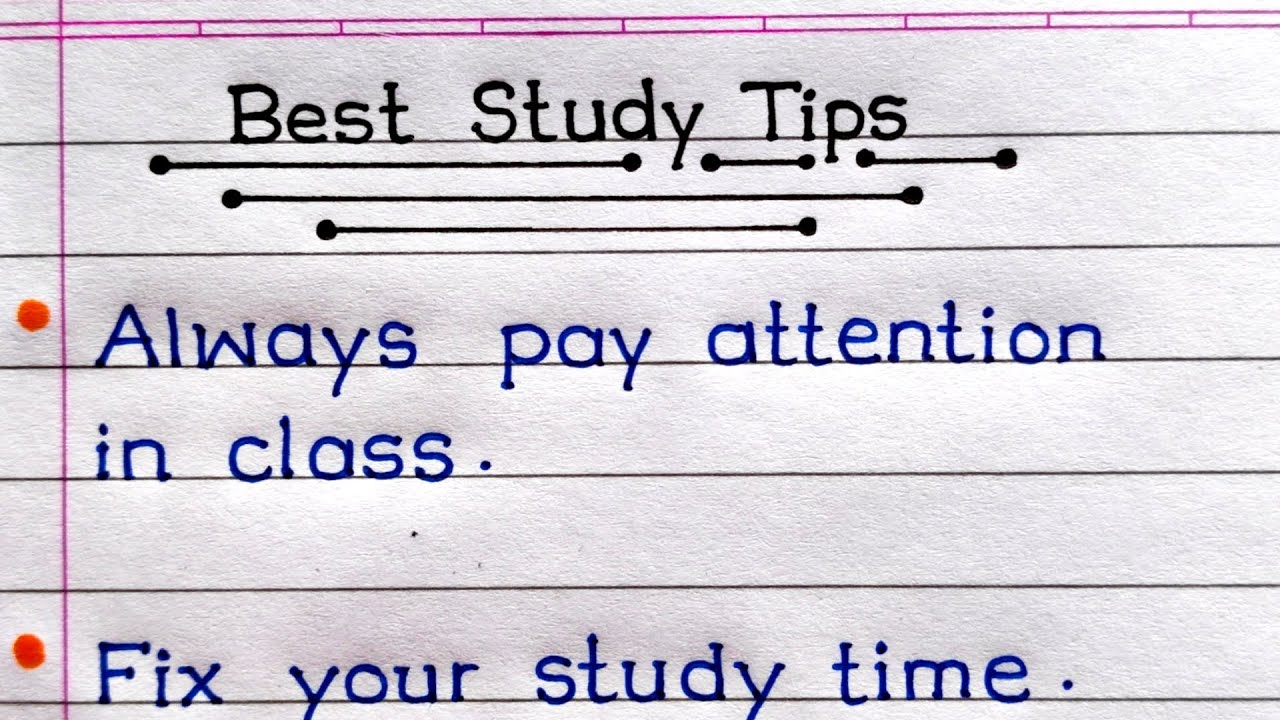 Best Study Tips
Always pay attention
in class.
Fix your study time.